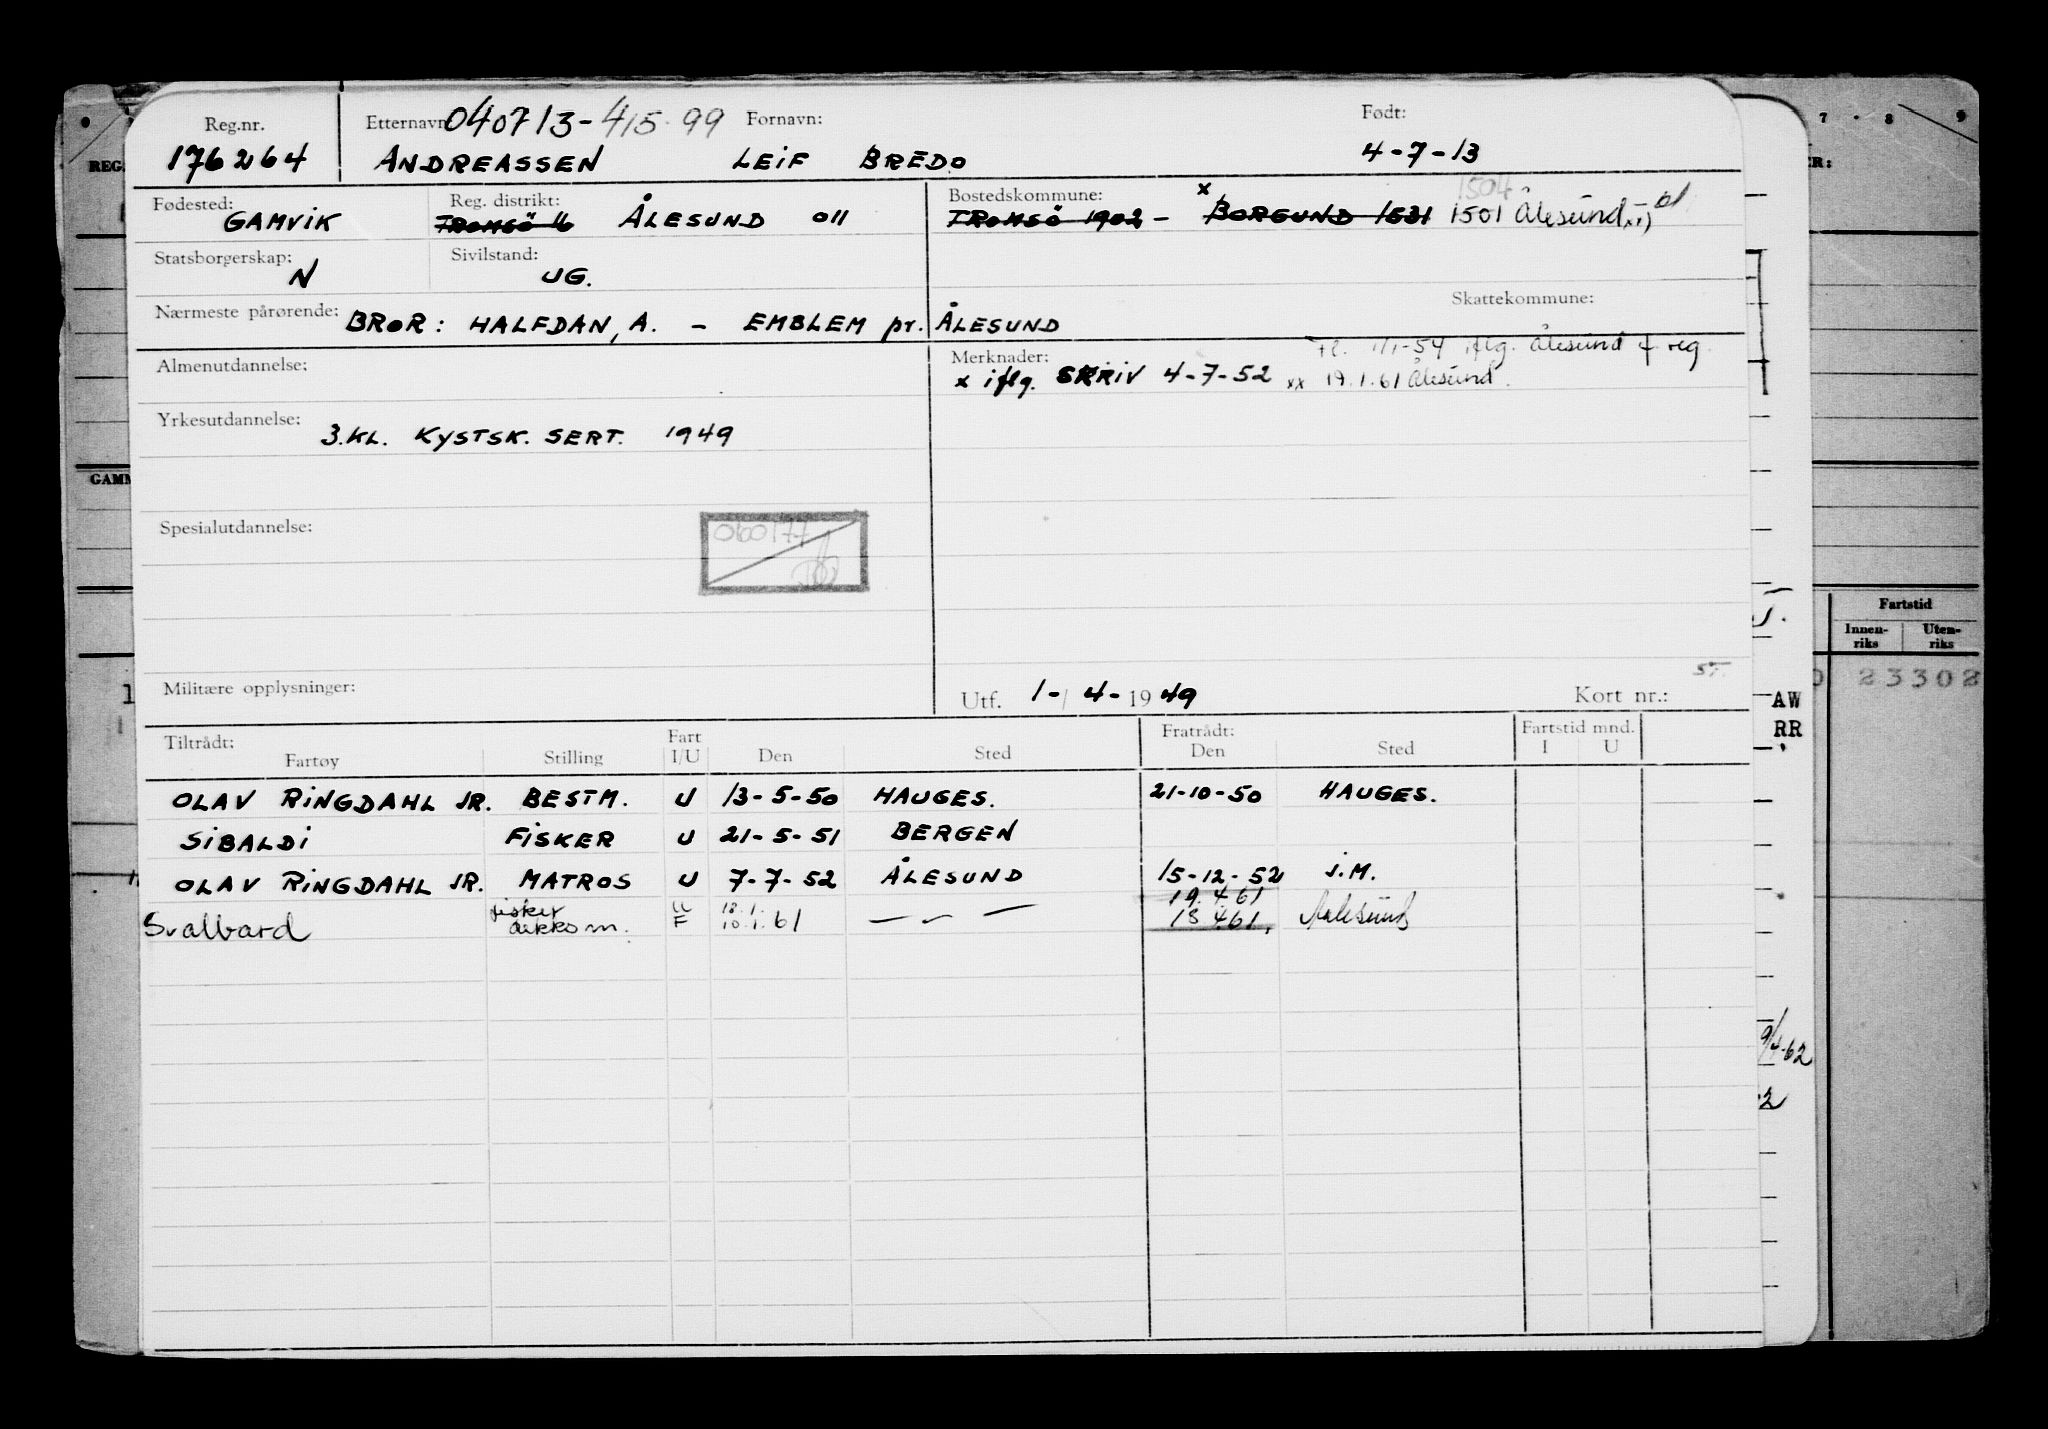 Reg.nr. Etternavn: 040713-415 99 Fornavn: Født:
176264 ANDREASSEN LEIF BREDO 4-7-13
Fødested: Reg. distrikt: Bostedskommune: x 1504
GAMVIK TROMSÖ 16 ÅLESUND 011 TROMSÖ 1902 - BORGUND 1531 1501 Ålesund xx) bl
Statsborgerskap: Sivilstand:
N UG.
Nærmeste pårørende: BROR: HALFDAN, A. - EMBLEM pr. ÅLESUND Skattekommune:
Almenutdannelse: Merknader: 1/1-54 iflg. Ålesund f reg.
x iflg. SKRIV 4-7-52 xx 19.1.61 Ålesund.
Yrkesutdannelse:
3.KL. KYSTSK. SERT. 1949
Spesialutdannelse: 060177
Militære opplysninger: Utf. 1-4-1949 Kort nr.:
Tiltrådt: Fart Fratrådt: Fartstid mnd.
Fartøy Stilling I/U Den Sted Den Sted I U
OLAV RINGDAHL JR. BESTM. U 13-5-50 HAUGES. 21-10-50 HAUGES.
SIBALDI FISKER U 21-5-51 BERGEN
OLAV RINGDAHL JR. MATROS U 7-7-52 ÅLESUND 15-12-52 I.M.
Svalbard fisker U 18.1. 19.4.61
dekksm. F 10.1.61 — — — 18.4.61, Aalesund
REG.
GAMM
7 8 9
ER:
Fartstid
Innen-riks Uten-riks
0 23302
AW
RR
9/4-62